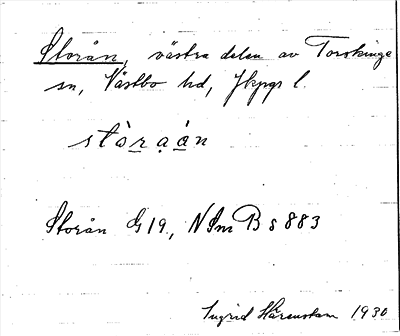 Storån, västra delen av Torskinge
sn, Västbo hd, Jkpgs l.
stòraån
Storån G 19, NSmB s 883
Ingrid Härenstam 1930